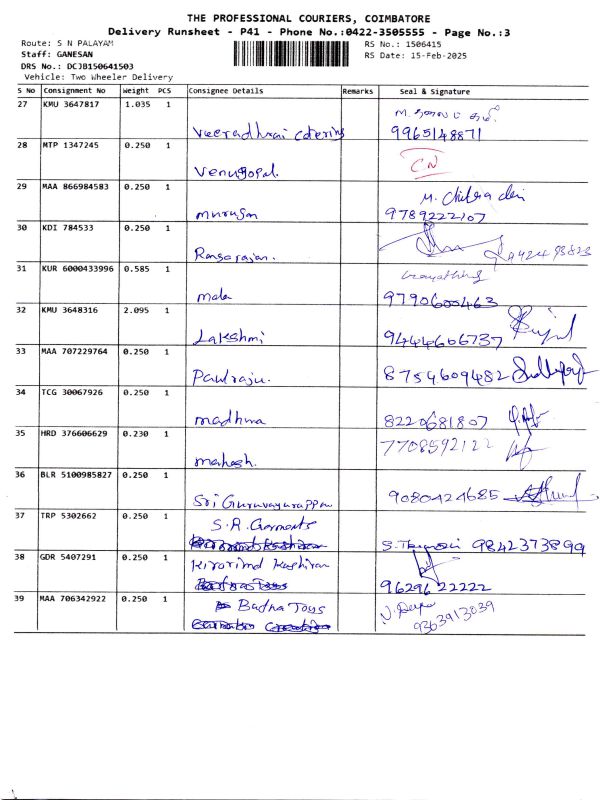 THE PROFESSIONAL COURIERS, COIMBATORE
Delivery Runsheet - P41 - Phone No.:0422-3505555 - Page No.:3
Route: S N PALAYAM
RS No.: 1506415
Staff: GANESAN
RS Date: 15-Feb-2025
DRS No.: DCJB150641503
Vehicle: Two Wheeler Delivery
S No Consignment No Weight PCS Consignee Details Remarks Seal & Signature
27 KMU 3647817 1.035 1
Veeradhurai Catering 9965148871
28 MTP 1347245 0.250 1 CN
Venugopal.
29 MAA 866984583 0.250 1 M. Chitra devi
Murugan 9789222107
30 KDI 784533 0.250 1
Rangarajan.
31 KUR 6000433996 0.585 1
Mala 9790600463
32 KMU 3648316 2.095 1
Lakshmi 9444606737
33 MAA 707229764 0.250 1
Paulraju. 8754609482
34 TCG 30067926 0.250 1
Madhua 8220681807
35 HRD 376606629 0.230 1 7708592122
Mahesh.
36 BLR 5100985827 0.250 1
Sri Guruvayurappan 9080424685
37 TRP 5302662 0.250 1 S.R. Garments
9842373899
38 GDR 5407291 0.250 1 Kirorimd Kashiram
96296 22222
39 MAA 706342922 0.250 1 Badna Toys
9363913039